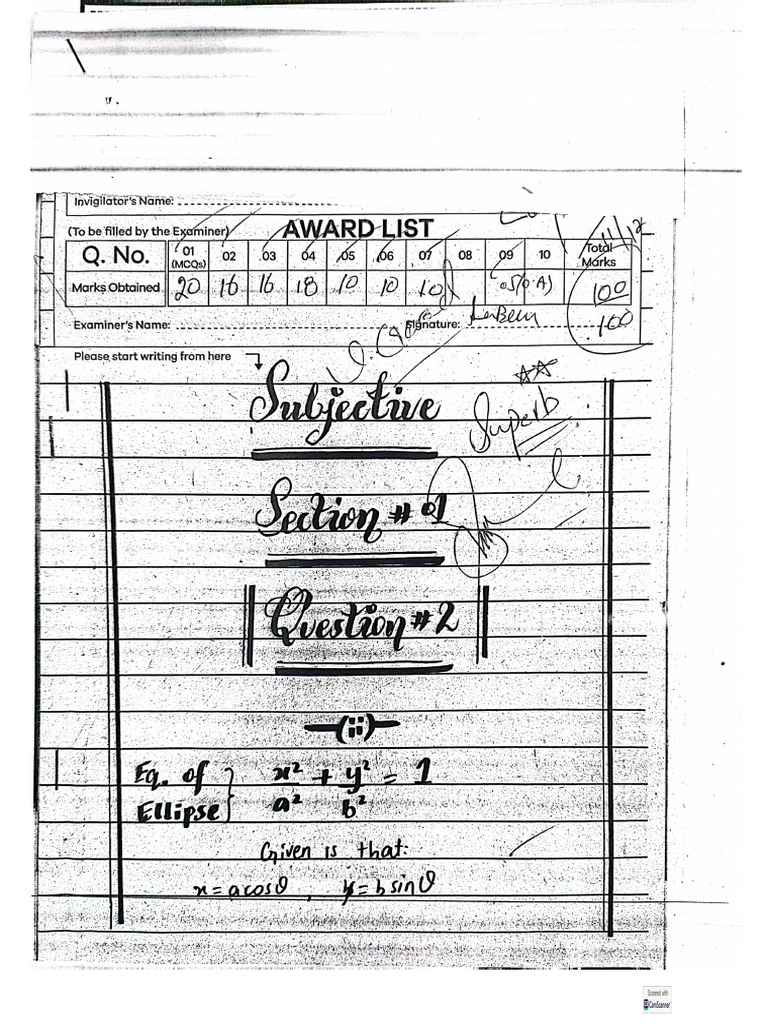 Invigilator's Name:
(To be filled by the Examiner) AWARD LIST
Q. No. 01 (MCQs) 02 03 04 05 06 07 08 09 10 Total Marks
Marks Obtained 20 16 16 18 10 10 10 100
100
Examiner's Name: Signature:
Please start writing from here
V. Good
Superb
Subjective
Section # 01
Question # 2
(ii)
Eq. of Ellipse } x²/a² + y²/b² = 1
Given is that:
x = a cosθ , y = b sinθ
Scanned with
CamScanner